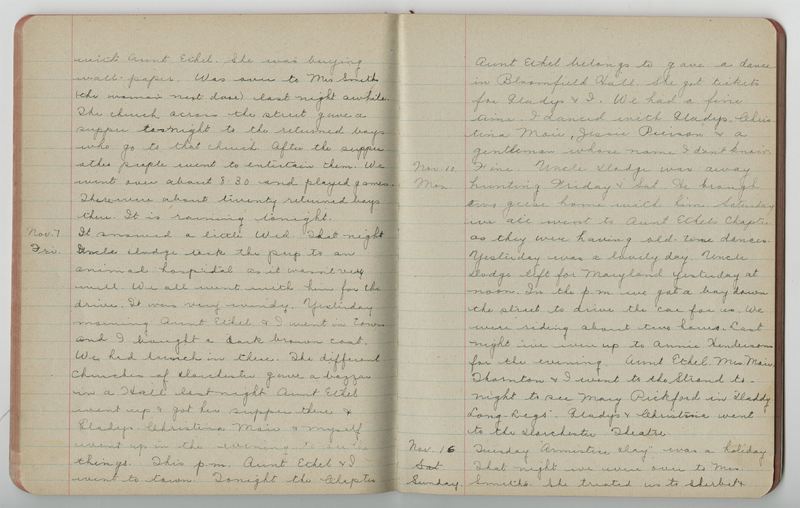 with Aunt Ethel. She was buying
wall-paper. Was over to Mrs Smiths
(the woman next door) last night awhile.
The church across the street gave a
supper tonight to the returned boys
who go to that church. After the supper
other people went to entertain them. We
went over about 8:30 and played games.
There were about twenty returned boys
there. It is raining tonight.
Nov. 7 It snowed a little Wed. That night
Fri. Uncle Dodge took the pup to an
animal hospital as it wasnt very
well. We all went with him for the
drive. It was very windy. Yesterday
morning Aunt Ethel & I went in town
and I bought a dark brown coat.
We had lunch in there. The different
Churches of Dorchester gave a bazzar
in a Hall last night. Aunt Ethel
went up & got her supper there &
Gladys Christina Mair & myself
went up in the evening to
things. This p.m. Aunt Ethel & I
went to town. Tonight the Chapter
Aunt Ethel belongs to gave a dance
in Bloomfield Hall. She got tickets
for Gladys & I. We had a fine
time. I danced with Gladys, Chris-
tina Mair, Jessie Pierson & a
gentleman whose name I dont know.
Nov. 10 Fine. Uncle Dodge was away
Mon. hunting Friday & Sat. He brough
two geese home with him. Saturday
we all went to Aunt Ethels Chapter
as they were having old-time dances.
Yesterday was a lovely day. Uncle
Dodge left for Maryland yesterday at
noon. In the p.m. we got a boy down
the street to drive the car for us. We
were riding about two hours. Last
night we were up to Annie Hendersons
for the evening. Aunt Ethel, Mrs Mair,
Thornton & I went to the Strand to-
night to see Mary Pickford in "Daddy
Long-Legs". Gladys & Christina went
to the Dorchester Theatre
Nov. 16 Tuesday "Armistice day" was a holiday
Sat That night we were over to Mrs.
Sunday. Smiths. She treated us to sherbet &